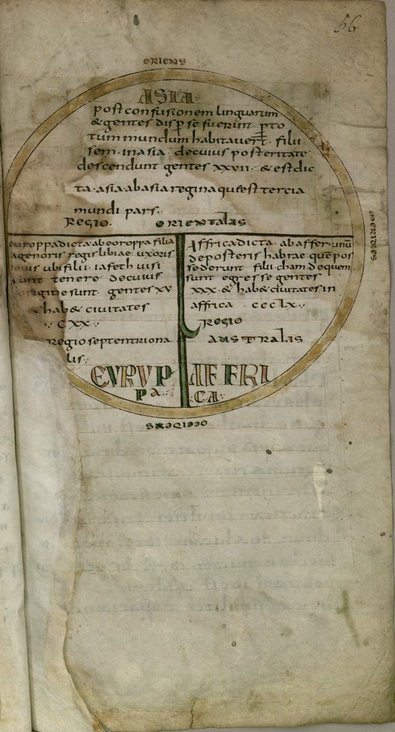 56
ORIENS
ASIA
post confusionem linguarum
& gentes disp se fuerint p to
tum mundum habitavert filii
sem in asia de cuius posteritate
descendunt gentes xxvii & est dic
ta asia ab asia regina que est tercia
mundi pars
REGIO ORIENTALIS
europpa dicta ab eoroppa filia
agenoris regis libiae uxoris
iovis ubi filii iafeth visi
sunt tenere de cuius
origine sunt gentes xv
& hab& civitates
cxx
regio septentriona
lis
EVRVP
PA
Affrica dicta ab affer unū
de posteris habrae que pos
sederunt filii cham de quem
sunt egresse gentes
xxx & hab& civitates in
affrica ccclx
REGIO
AUSTRALIS
AFFRI
CA
OCCI